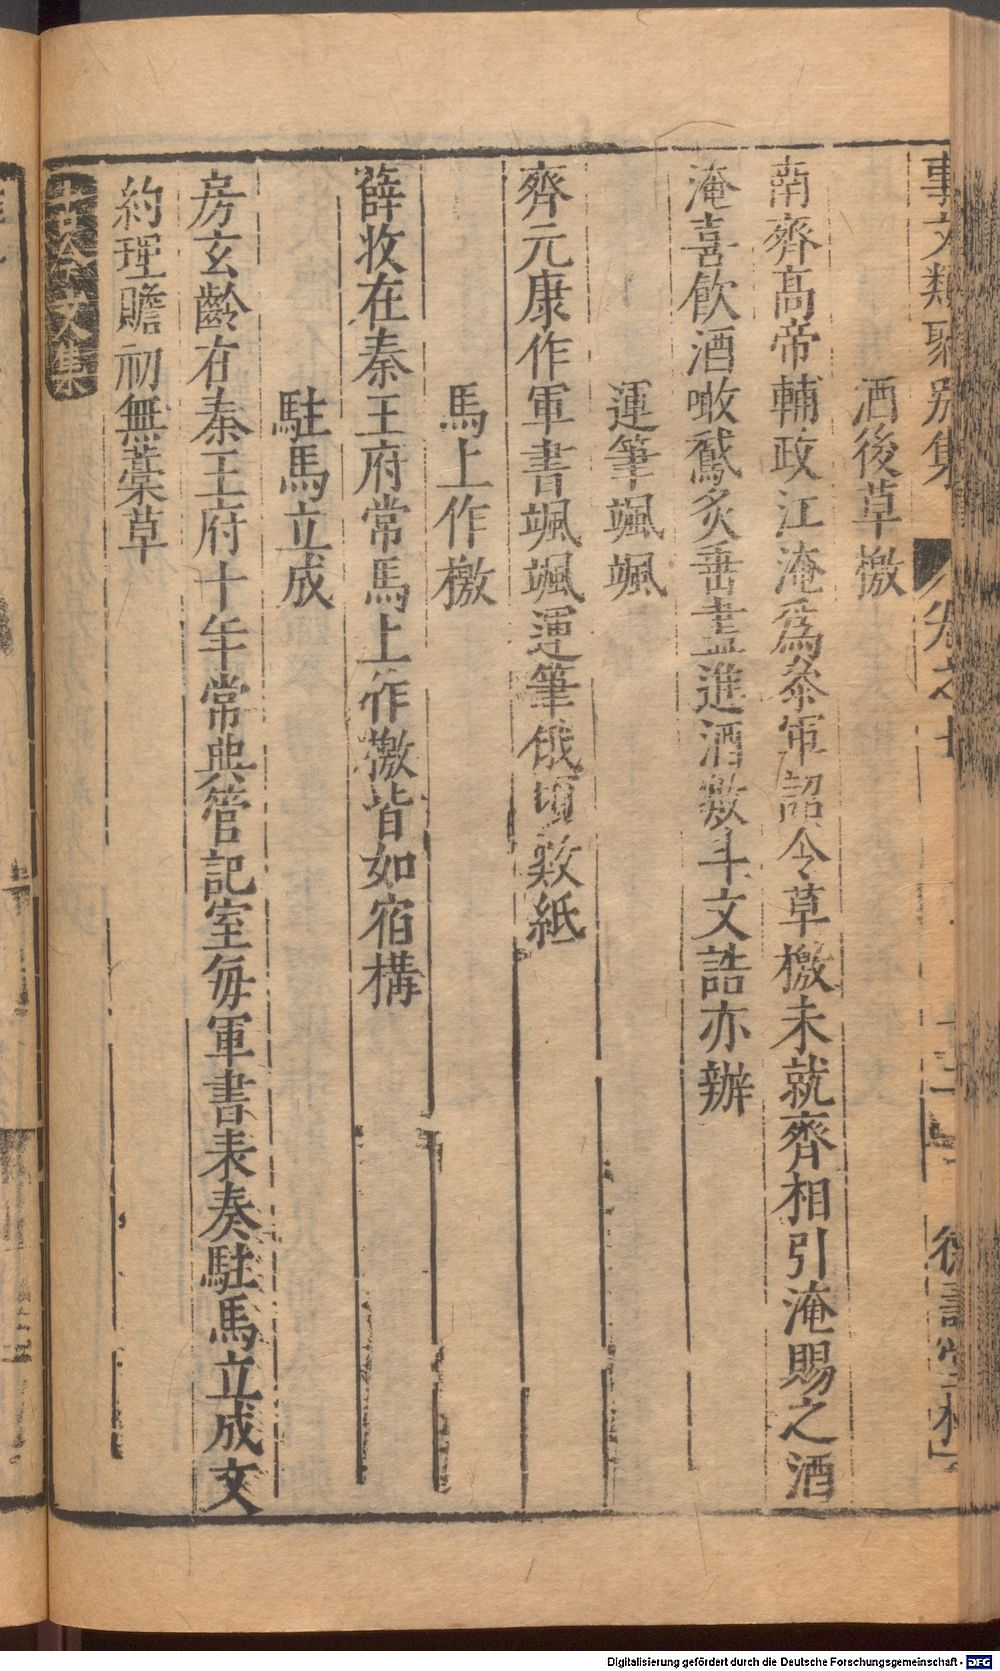 事文類聚別集 卷之七 德壽堂梓
酒後草檄
南齊高帝輔政江淹爲叅軍詔令草檄未就齊相引淹賜之酒
淹喜飲酒噉鵞炙垂盡進酒數斗文誥亦辦
運筆颯颯
齊元康作軍書颯颯運筆俄頃數紙
馬上作檄
薛收在秦王府常馬上作檄皆如宿構
駐馬立成
房玄齡在秦王府十年常典管記室每軍書表奏駐馬立成文
約理贍初無藁草
古今文集
Digitalisierung gefördert durch die Deutsche Forschungsgemeinschaft - DFG